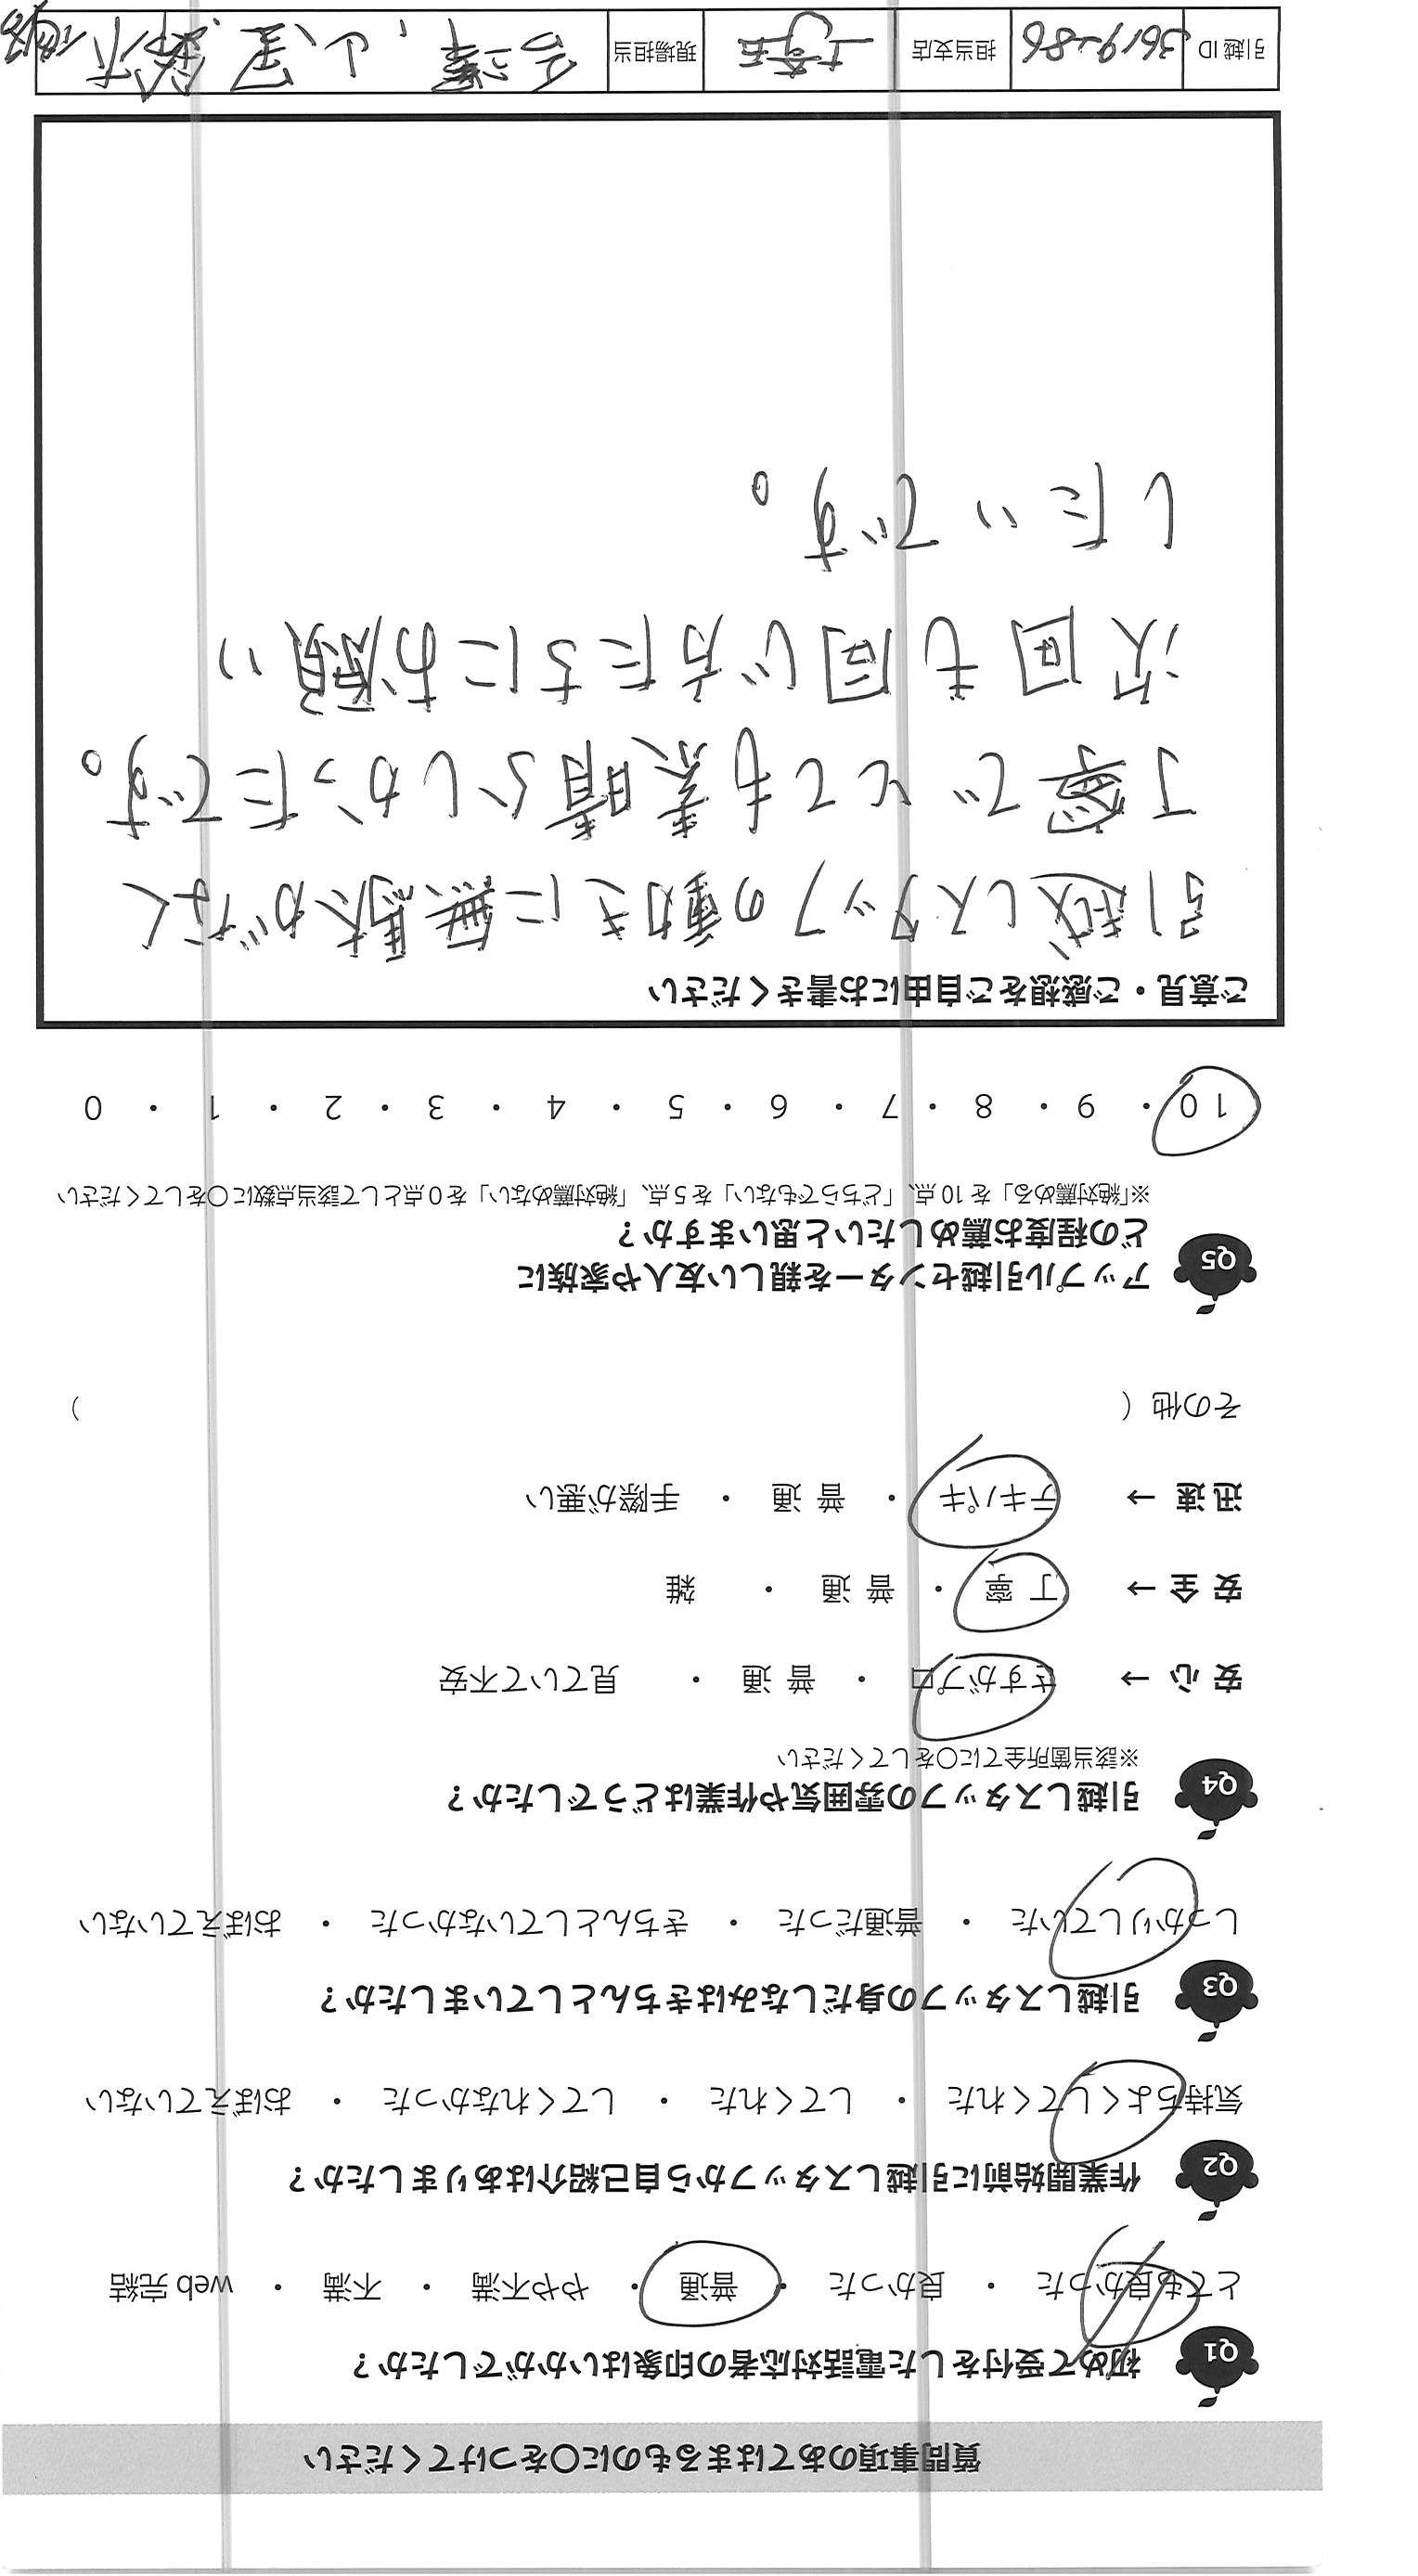 質問事項のあてはまるものに○をつけてください
Q1 初めて受付をした電話対応者の印象はいかがでしたか？
とても良かった ・ 良かった ・ 普通 ・ やや不満 ・ 不満 ・ web 完結
Q2 作業開始前に引越しスタッフから自己紹介はありましたか？
気持ちよくしてくれた ・ してくれた ・ してくれなかった ・ おぼえていない
Q3 引越しスタッフの身だしなみはきちんとしていましたか？
しっかりしていた ・ 普通だった ・ きちんとしていなかった ・ おぼえていない
Q4 引越しスタッフの雰囲気や作業はどうでしたか？
※該当箇所全てに○をしてください
安 心 → さすがプロ ・ 普 通 ・ 見ていて不安
安 全 → 丁 寧 ・ 普 通 ・ 雑
迅 速 → テキパキ ・ 普 通 ・ 手際が悪い
その他（ ）
Q5 アップル引越センターを親しい友人や家族に
どの程度お薦めしたいと思いますか？
※「絶対薦める」を 10 点、「どちらでもない」を 5 点、「絶対薦めない」を 0 点として該当点数に○をしてください
10 ・ 9 ・ 8 ・ 7 ・ 6 ・ 5 ・ 4 ・ 3 ・ 2 ・ 1 ・ 0
ご意見・ご感想をご自由にお書きください
引越しスタッフの動きに無駄がなく
丁寧でとても素晴らしかったです。
次回も同じ方たちにお願い
したいです。
引越 ID 3619-86 担当支店 現場担当